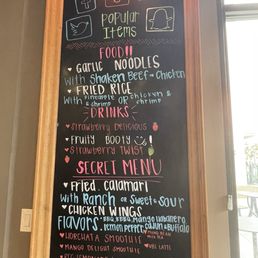 popular
Items
FOOD!!
GARLIC NOODLES
With Shaken Beef or Chicken
FRIED RICE
With pineapple & shrimp OR chicken & shrimp
DRINKS
Strawberry Delicious
Fruity Booty
Strawberry TWIST
SECRET MENU
Fried calamari
With Ranch or Sweet & Sour
CHICKEN WINGS
Flavors: BBQ, Mango Habanero,
lemon pepper, Cajun, Buffalo
HORCHATA SMOOTHIE
MANGO DELIGHT SMOOTHIE
LATTE